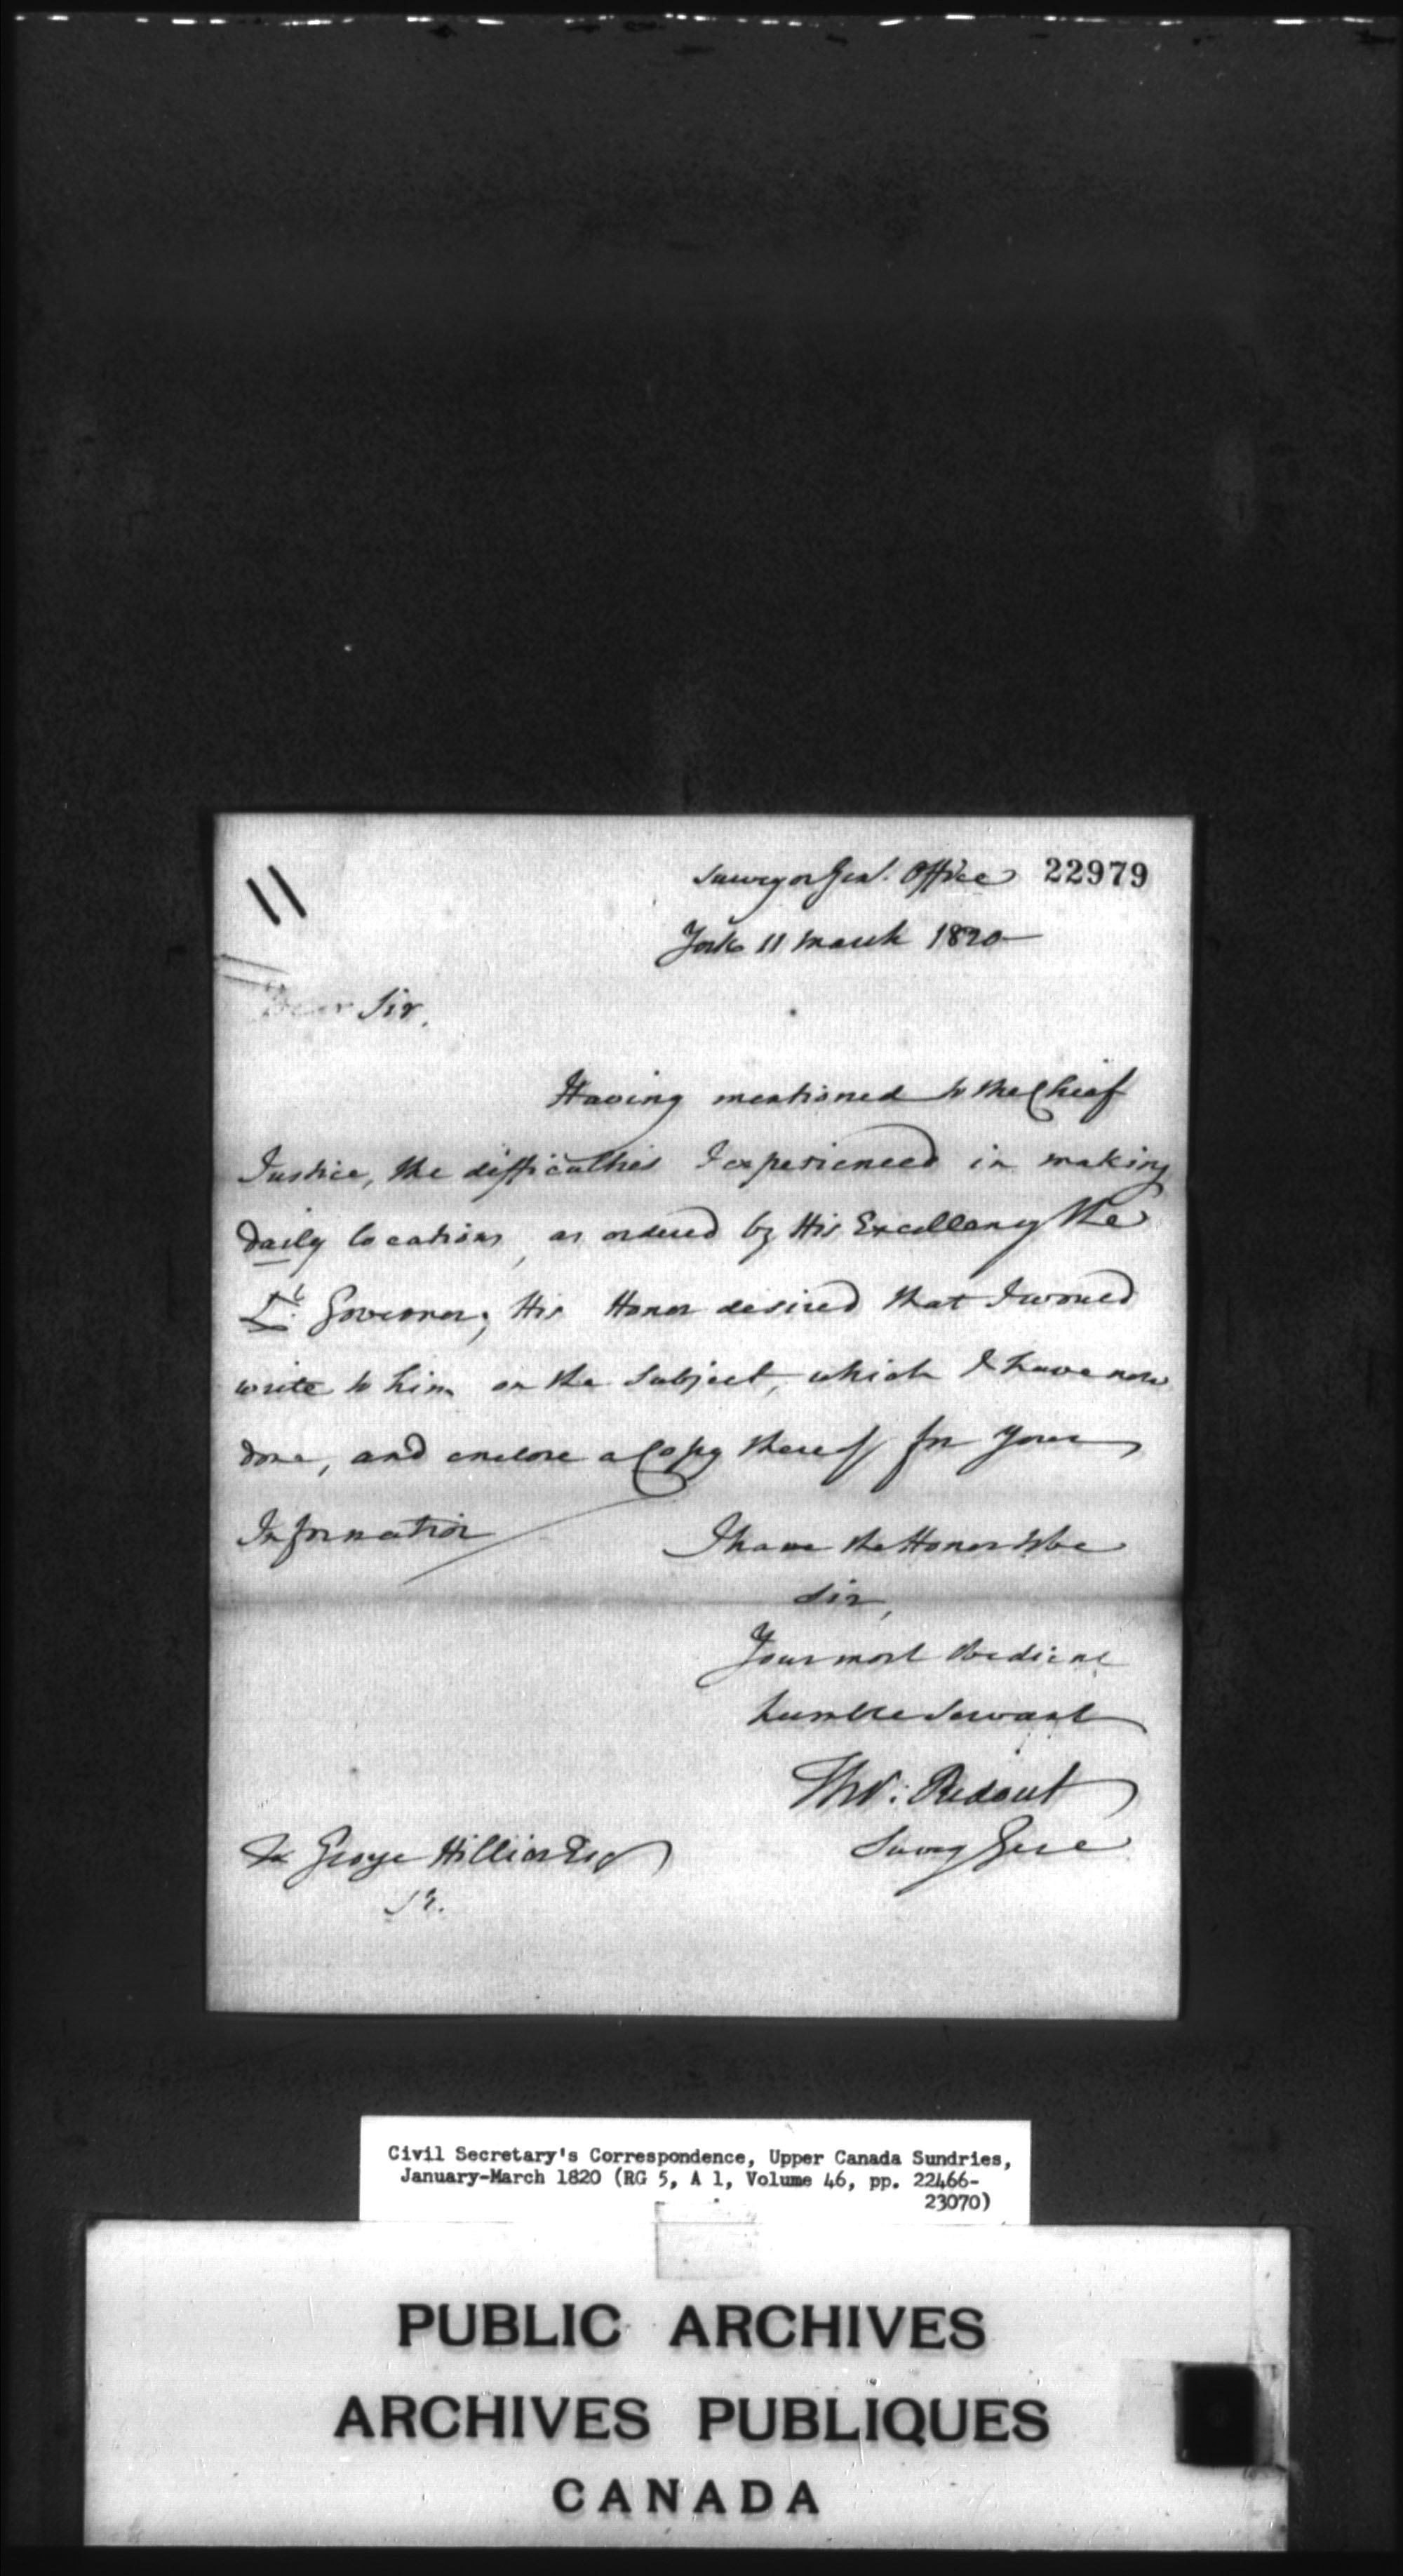 Surveyor Genl. Office 22979
York 11 March 1820
Dear Sir,
Having mentioned to the Chief
Justice, the difficulties I experienced in making
daily locations, as ordered by His Excellency the
Lt Governor; His Honor desired that I would
write to him on the subject, which I have now
done, and enclose a Copy thereof for your
Information
I have the Honor to be
Sir,
Your most Obedient
humble Servant
Thos: Ridout
Survey Genl
To George Hillier Esq
Civil Secretary's Correspondence, Upper Canada Sundries,
January-March 1820 (RG 5, A 1, Volume 46, pp. 22466-
23070)
PUBLIC ARCHIVES
ARCHIVES PUBLIQUES
CANADA